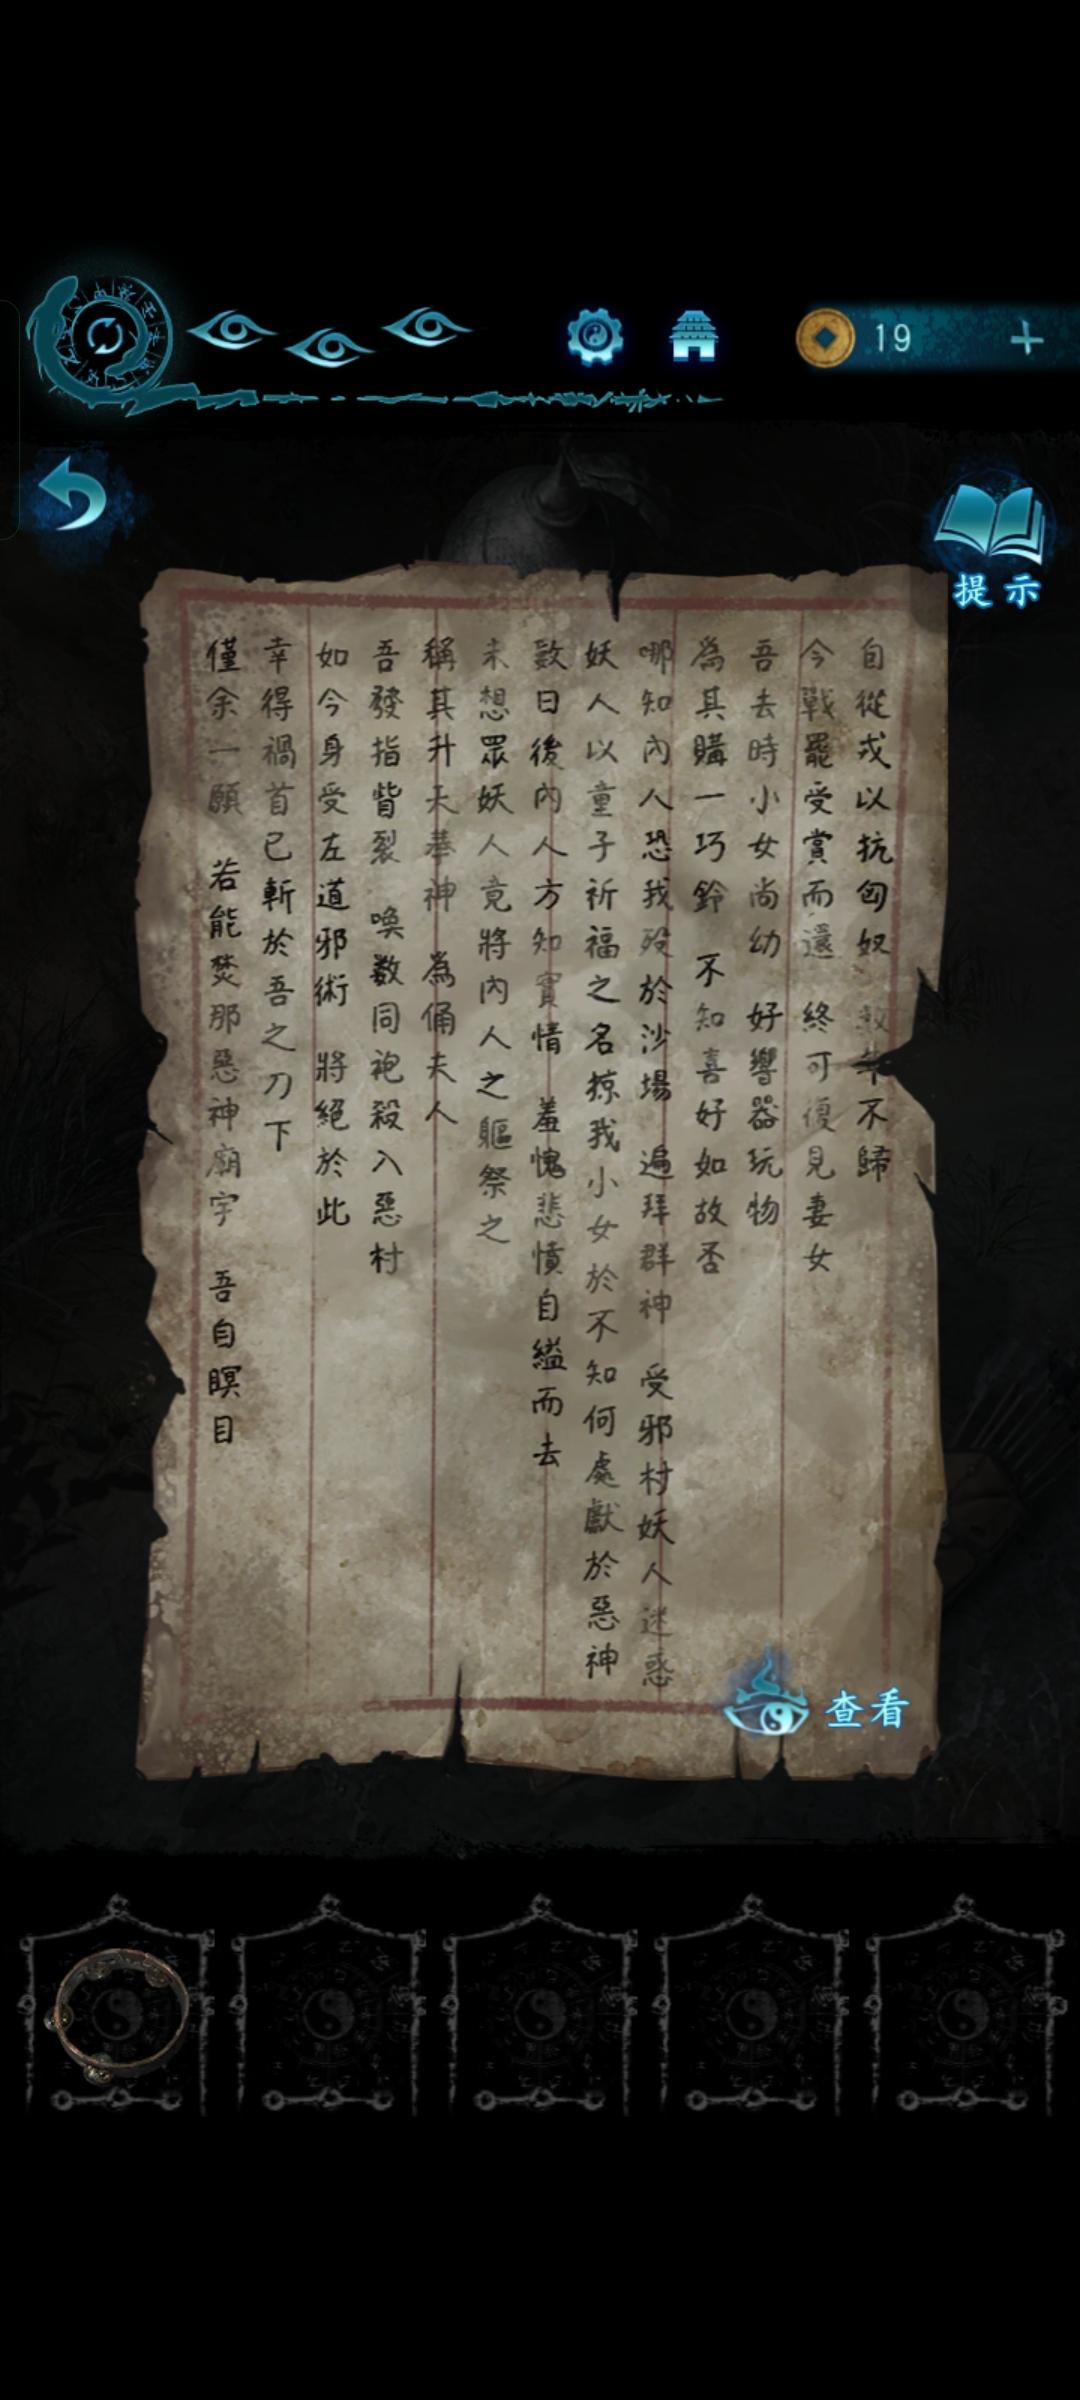 19
提示
自從戎以抗匈奴 數年不歸
今戰罷受賞而還 終可復見妻女
吾去時小女尚幼 好響器玩物
為其購一巧鈴 不知喜好如故否
哪知內人恐我歿於沙場 遍拜群神 受邪村妖人迷惑
妖人以童子祈福之名掠我小女於不知何處獻於惡神
數日後內人方知實情 羞愧悲憤自縊而去
未想眾妖人竟將內人之軀祭之
稱其升天奉神 為俑夫人
吾發指眥裂 喚数同袍殺入惡村
如今身受左道邪術 將絕於此
幸得禍首已斬於吾之刀下
僅余一願 若能焚那惡神廟宇 吾自瞑目
查看